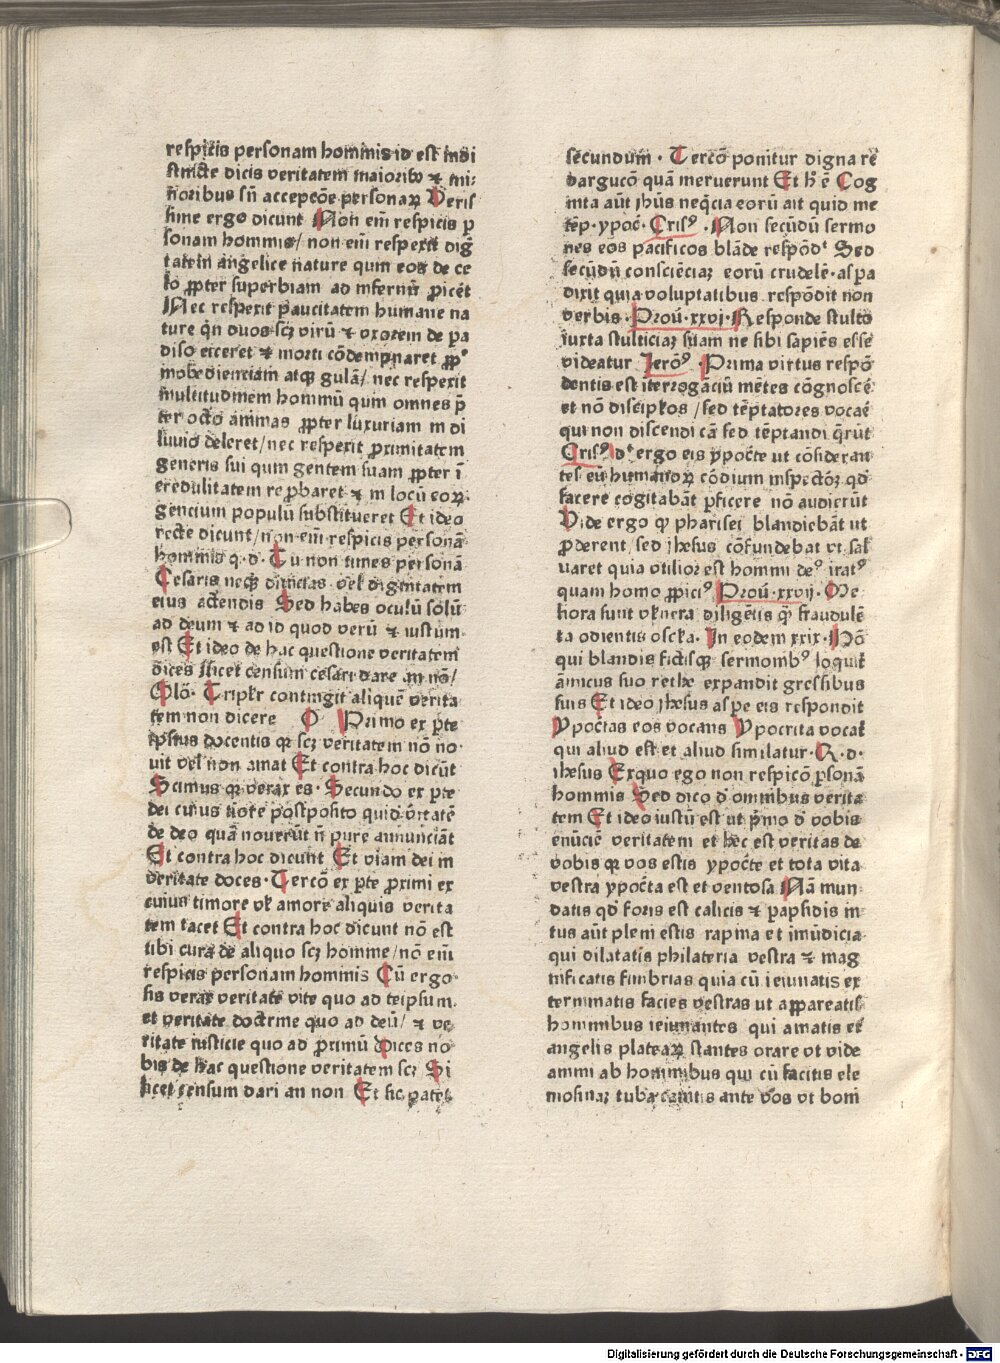 respicis personam hominis id est indi
stincte dicis veritatem maioribꝰ ⁊ mi⸗
noribus sn̄ accepcōe personaꝝ Veris
sime ergo dicunt Non em̄ respicis ꝑ
sonam hominis/ non em̄ respexit dig
tatem angelice nature qum eos de ce
lo ꝓpter superbiam ad infernū ꝓicēt
Nec respexit paucitatem humane na
ture qn̄ duos scꝫ virū ⁊ vxorem de pa
diso eiceret ⁊ morti cōdempnaret ꝓpꝰ
inobedienciam atqꝫ gulā/ nec respexit
multitudinem hominū qum omnes p̄
ter octo animas ꝓpter luxuriam in di
luuio deleret/ nec respexit ꝓximitatem
generis sui qum gentem suam ꝓpter ī
credulitatem reꝓbaret ⁊ in locū eoꝝ
gencium populū substitueret Et ideo
recte dicunt/ non em̄ respicis personā
hominis q. d. Tu non times personā
Cesaris neqꝫ diuicias vel dignitatem
eius actendis Sed habes oculū solū
ad deum ⁊ ad id quod verū ⁊ iustum
est Et ideo de hac questione veritatem
dices licet censum cesari dare an nō/
Glō. Tripłr contingit aliquē verita
tem non dicere Primo ex ꝑte
ipsius docentis qꝛ scꝫ veritatem nō no
uit vel non amat Et contra hoc dicūt
Scimus qꝛ verax es. Secundo ex ꝑte
dei cuius tiore postposito quid v̄itatē
de deo quā nouerūt n̄ pure annunciāt
Et contra hoc dicunt Et viam dei in
veritate doces. Tercō ex ꝑte ꝓximi ex
cuius timore vł amore aliquis verita
tem tacet Et contra hoc dicunt nō est
tibi cura de aliquo scꝫ homine/ nō em̄
respicis personam hominis Cū ergo
sis verax veritate vite quo ad teipsum
et veritate doctrine quo ad deū/ ⁊ ve
ritate iusticie quo ad ꝓximū Dices no
bis de hac questione veritatem scꝫ Si
licet censum dari an non Et sic patet
secundum. Tercō ponitur digna re
dargucō quā meruerunt Et h̄ ē Cog
nita aūt ih̄us neq̄cia eorū ait quid me
tēp. ypoc̄. Crisꝰ. Non secūdū sermo
nes eos pacificos blāde respōdᵗ Sed
secūdū consciēciaꝫ eorū crudelē. aspa
dixit quia voluptatibus respōdit non
verbis. Prou̅. xxvj. Responde stulto
iuxta stulticiaꝫ suam ne sibi sapiēs esse
videatur Jerōꝰ. Prima virtus respō
dentis est iterrogāciū mētes cōgnosce
et nō discipłos / sed tēptatores vocaē
qui non discendi cā sed tēptandi q̄rūt
Crisꝰ dᵗ ergo eis ypoc̄te ut cōsideran
tes eū humanoꝝ cōdium inspectōꝫ qd̄
facere cogitabāt ꝑficere nō audierūt
Vide ergo qꝫ pharisei blandiebāt ut
ꝓderent / sed ihesus cōfundebat vt sal
uaret quia vtilior est homini deꝰ iratꝰ
quam homo ꝓpiciꝰ Prou̅. xxvij. Me
liora sunt vłnera diligētis q̄ fraudulē
ta odientis oscła. In eodem xxix. Hō
qui blandis fictisqꝫ sermonibꝰ loquit
amicus suo rethe expandit gressibus
suis Et ideo ihesus aspe eis respondit
Ypoctas eos vocans Ypocrita vocat
qui aliud est et aliud similatur. Q. d.
ihesus Exquo ego non respicō ꝑsonā
hominis Sed dico d̄ omnibus verita
tem Et ideo iustū est ut p̄mo d̄ vobis
enūciē veritatem et hec est veritas de
vobis qꝛ vos estis ypoc̄te et tota vita
vestra ypoc̄ta est et ventosa Nā mun
datis qd̄ foris est calicis ⁊ parapsidis in
tus aūt pleni estis rapina et imūdicia
qui dilatatis philateria vestra ⁊ mag
nificatis fimbrias quia cū ieiunatis ex
terminatis facies vestras ut appareatis
hominibus ieiunantes qui amatis et
angelis plateaꝝ stantes orare vt vide
amini ab hominibus qui cū facitis ele
mosinaꝫ tuba canitis ante vos vt homi
Digitalisierung gefördert durch die Deutsche Forschungsgemeinschaft - DFG